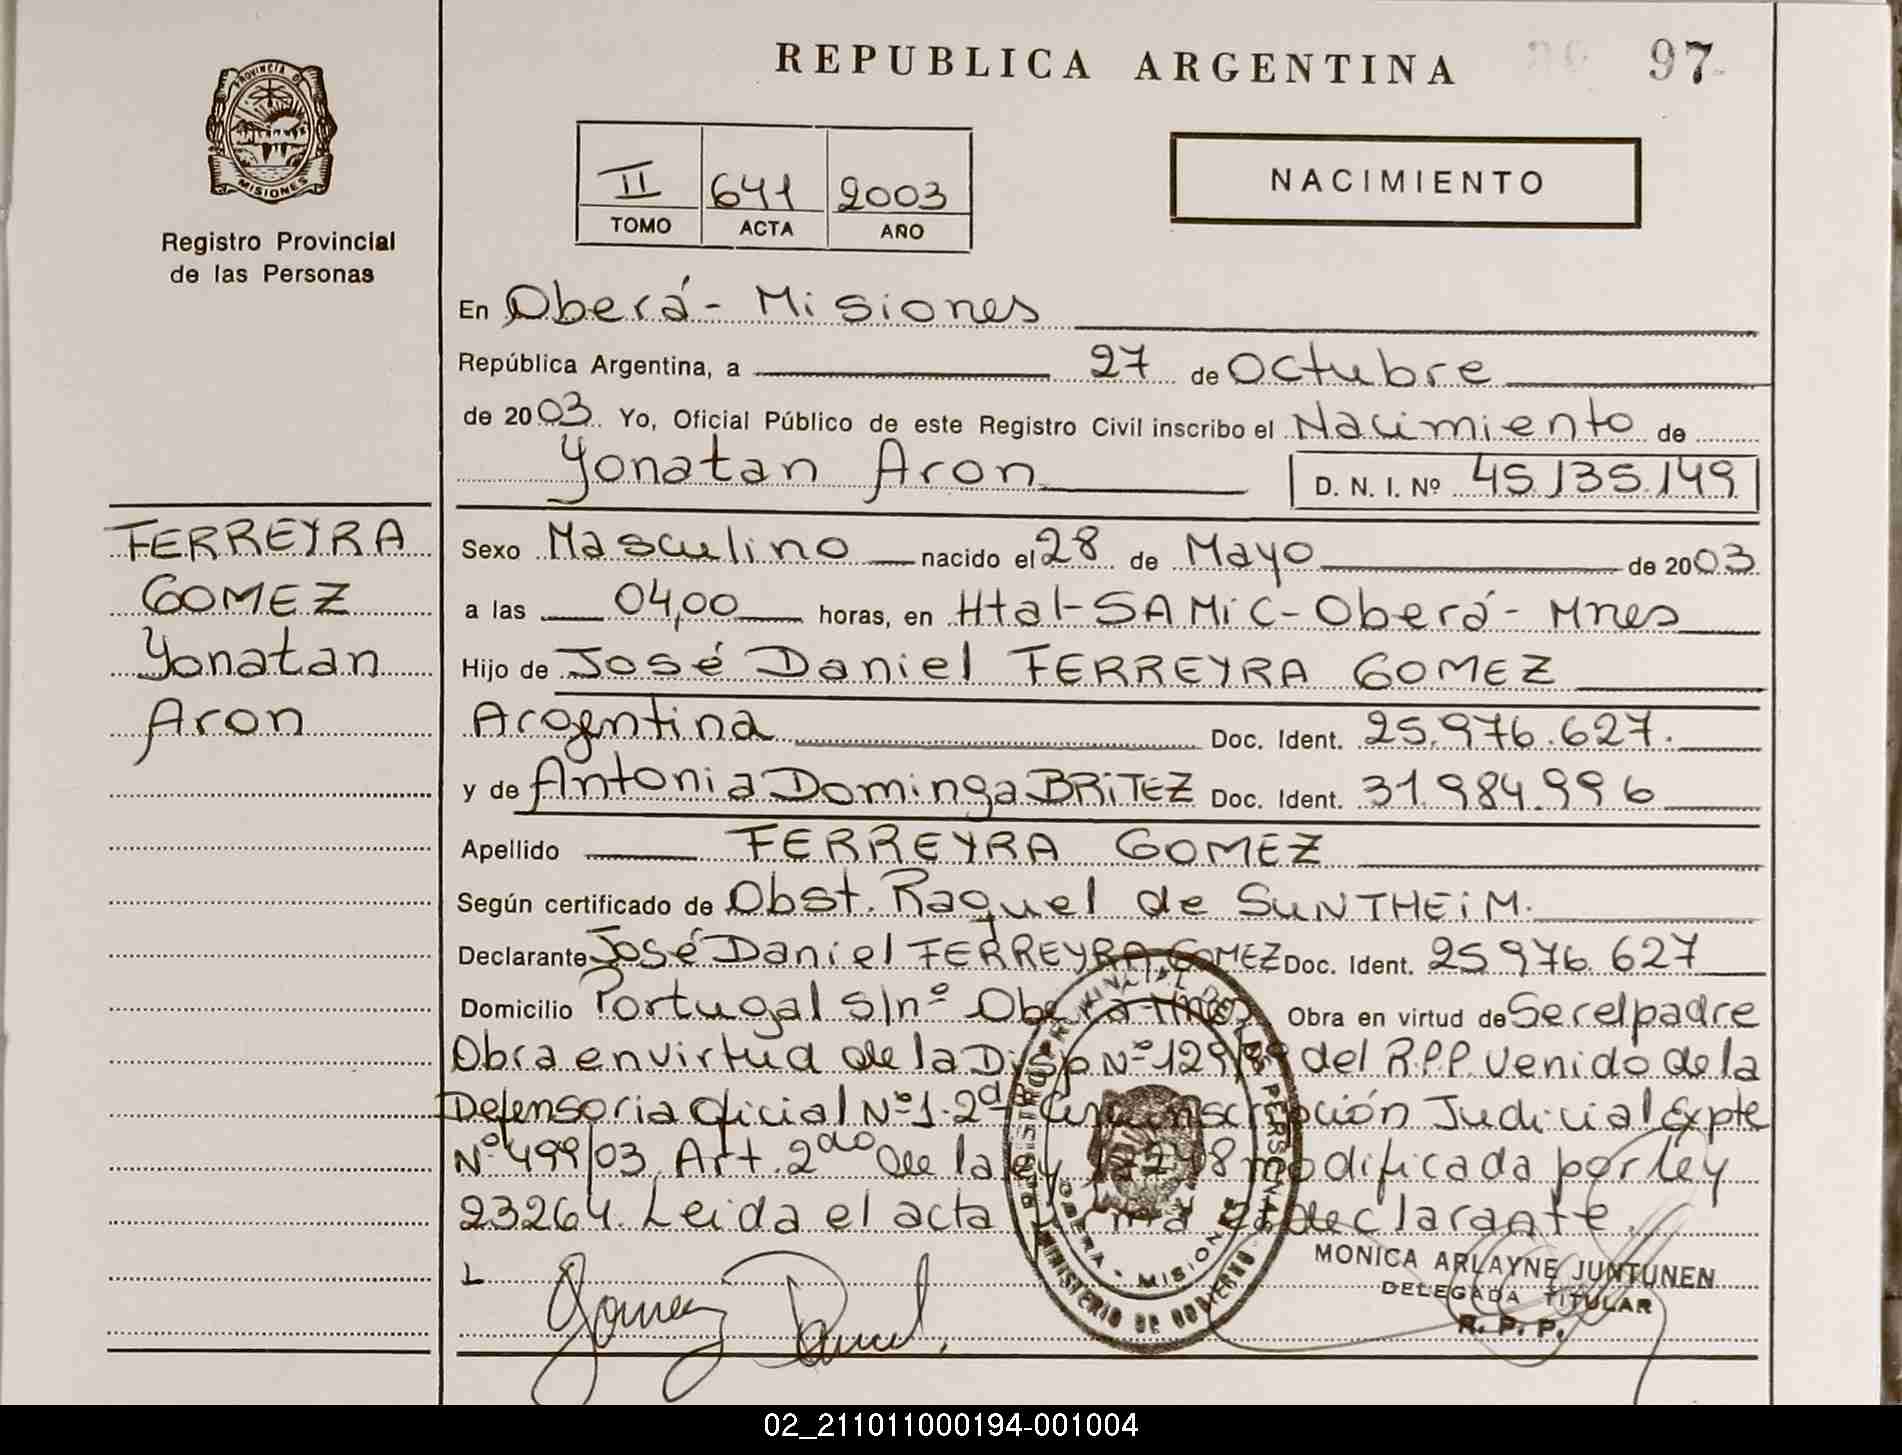 REPUBLICA ARGENTINA
97
PROVINCIA DE
MISIONES
Registro Provincial
de las Personas
II 641 2003
TOMO ACTA AÑO
NACIMIENTO
En Oberá - Misiones
República Argentina, a 27 de Octubre
de 2003. Yo, Oficial Público de este Registro Civil inscribo el Nacimiento de
Yonatan Aron D. N. I. Nº 45.135.149
FERREYRA
GOMEZ
Yonatan
Aron
Sexo Masculino nacido el 28 de Mayo de 2003
a las 04,00 horas, en Htal-SAMiC-Oberá-Mnes
Hijo de José Daniel FERREYRA GOMEZ
Argentina Doc. Ident. 25.976.627.
y de Antonia Dominga BRiTEZ Doc. Ident. 31.984.996
Apellido FERREYRA GOMEZ
Según certificado de Obst. Raquel de SUNTHEiM.
Declarante José Daniel FERREYRA GOMEZ Doc. Ident. 25976.627
Domicilio Portugal S/nº Oberá Mnes Obra en virtud de Ser el padre
Obra en virtud de la Disp Nº 129/89 del R.P.P. Venido de la
Defensoria Oficial Nº 1. 2da Circunscripción Judicial Expte
Nº 499/03. Art. 2do de la ley modificada por ley
23264. Leida el acta firma el declarante.
Gomez Daniel.
MINISTERIO DE GOBIERNO
OBERA - MISIONES
MONICA ARLAYNE JUNTUNEN
DELEGADA TITULAR
R. P. P.
02_211011000194-001004